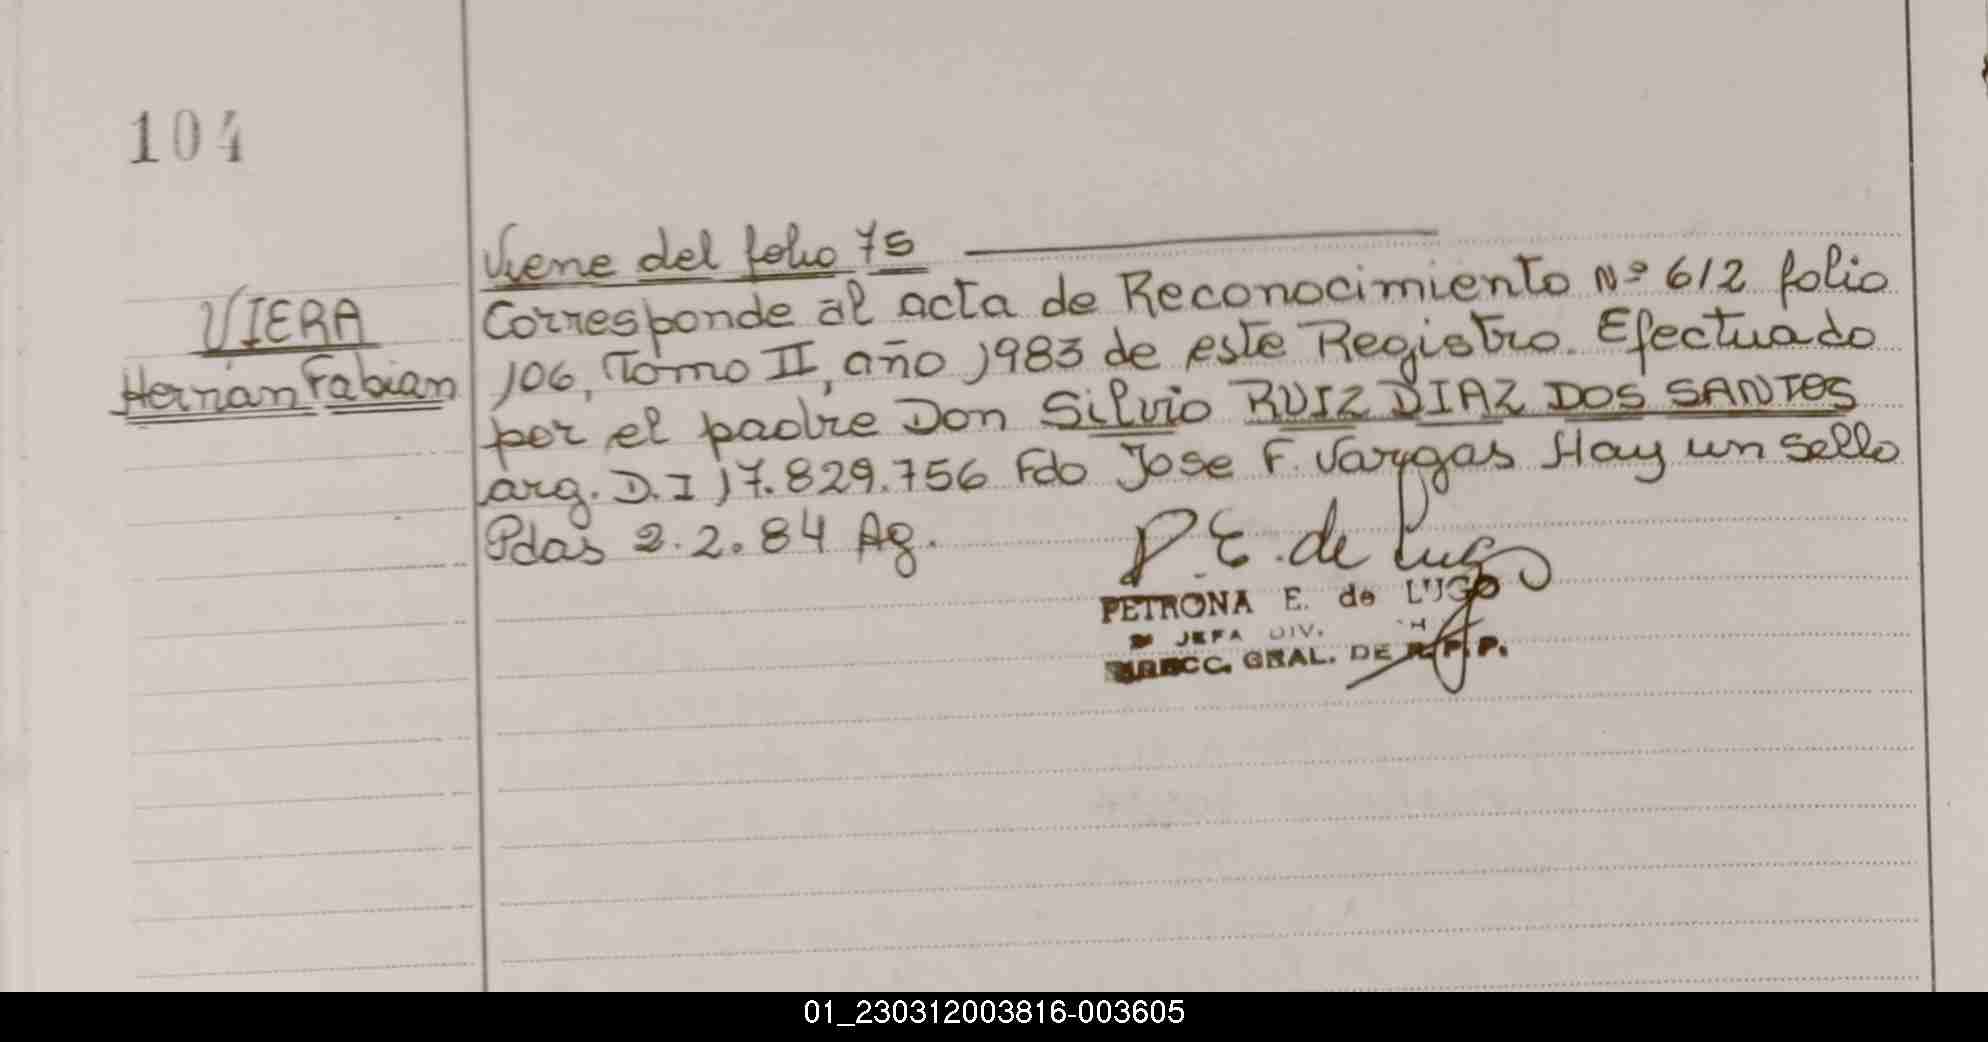 104
Viene del folio 75
VIERA
Hernán Fabian
Corresponde al acta de Reconocimiento Nº 612 folio
106, Tomo II, año 1983 de este Registro. Efectuado
por el padre Don Silvio RUIZ DIAZ DOS SANTOS
arg. D.I 17.829.756 Fdo Jose F. Vargas Hay un sello
Pdas 2.2.84 Ag.
P. E. de Lugo
PETRONA E. de LUGO
JEFA DIV.
GRAL. DE R.P.P.
01_230312003816-003605